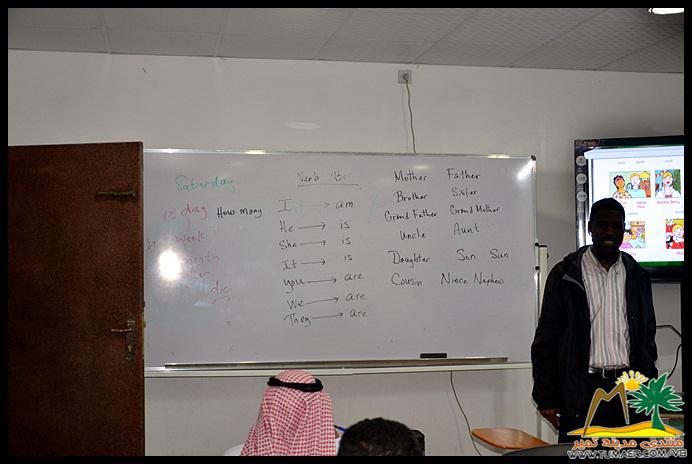 Saturday
day How many
week
Verb To Be
I → am
He → is
She → is
It → is
you → are
We → are
They → are
Mother Father
Brother Sister
Grand Father Grand Mother
Uncle Aunt
Daughter Son Sun
Cousin Niece Nephew
منتدى مدينة تمير
WWW.TUMAER.COM/VB